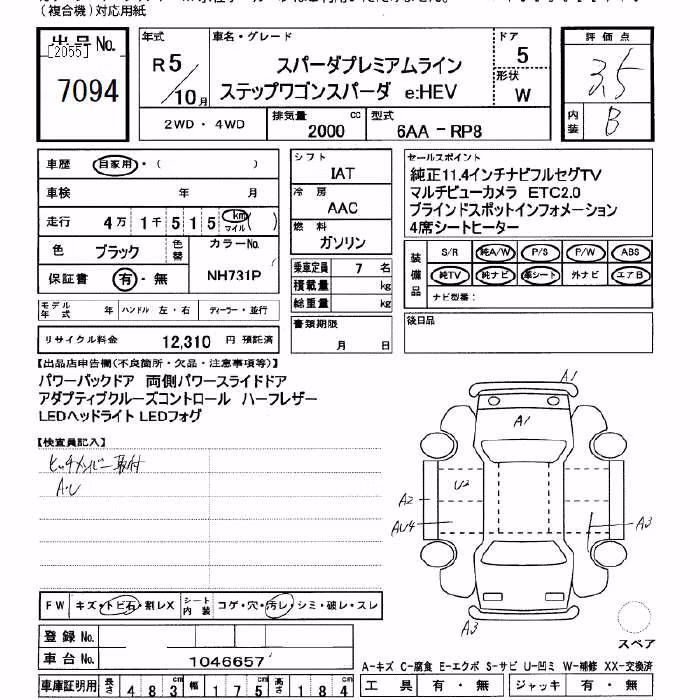 (複合機)対応用紙
出品No.
[2055]
7094
年式
R5/10月
車名・グレード
スパーダプレミアムライン
ステップワゴンスパーダ e:HEV
ドア
5
形状
W
評価点
3.5
内装
B
2WD・4WD
排気量
2000 cc
型式
6AA-RP8
車歴 自家用・( )
車検 年 月
走行 4万 1千 5 1 5 km マイル ( )
色 ブラック
色替
カラーNo.
NH731P
保証書 有・無
シフト
IAT
冷房
AAC
燃料
ガソリン
乗車定員 7 名
積載量 kg
総重量 kg
書類期限
月 日
セールスポイント
純正11.4インチナビフルセグTV
マルチビューカメラ ETC2.0
ブラインドスポットインフォメーション
4席シートヒーター
装備品
S/R 純A/W P/S P/W ABS
純TV 純ナビ 革シート 外ナビ エアB
ナビ型番:
後日品
モデル年式 年 ハンドル 左・右 ディーラー・並行
リサイクル料金 12,310 円 預託済
【出品店申告欄(不良箇所・欠品・注意事項等)】
パワーバックドア 両側パワースライドドア
アダプティブクルーズコントロール ハーフレザー
LEDヘッドライト LEDフォグ
【検査員記入】
ヒッチメンバー取付
A・U
A1
A1
U2
A2
AU4
A3
A3
スペア
FW キズ・トビ石・割レX シート内装 コゲ・穴・汚レ・シミ・破レ・スレ
登録No.
車台No. 1046657
A-キズ C-腐食 E-エクボ S-サビ U-凹ミ W-補修 XX-交換済
車庫証明用 長さ 483 cm 幅 175 cm 高さ 184 cm
工具 有・無 ジャッキ 有・無